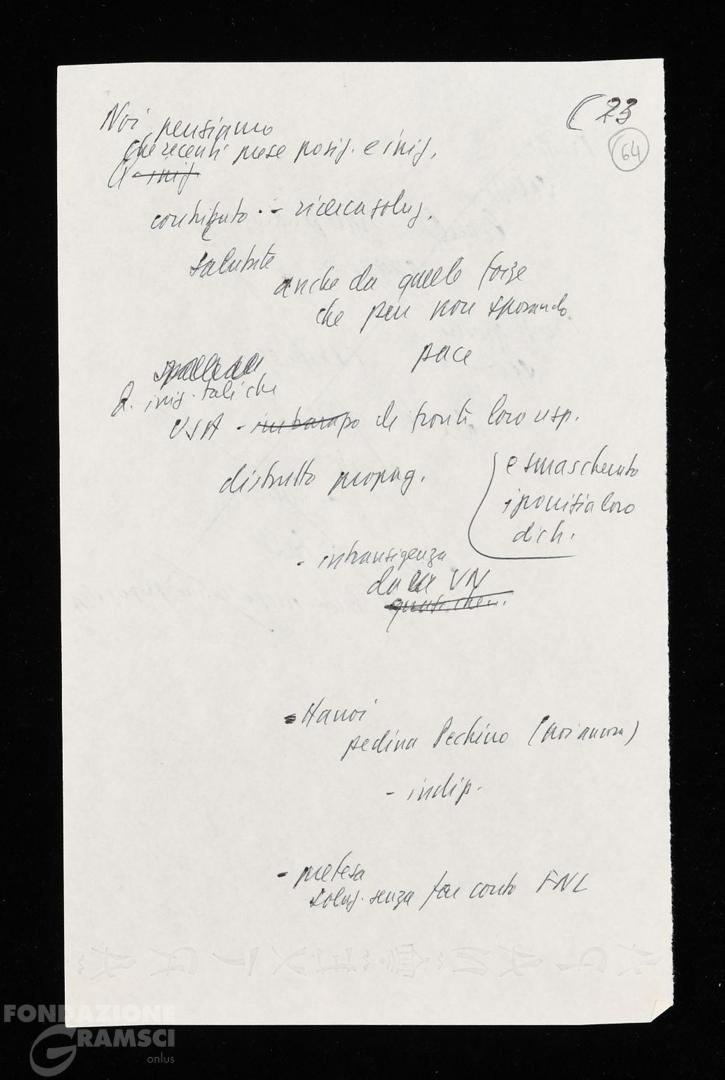 (23
64
Noi pensiamo
che recenti prese posiz. e iniz.
iniz
contributo - ricerca soluz.
salutate
anche da quelle forze
che pur non sposando
pace
iniz. tali che
USA - di fronti loro resp.
distrutto propag.
e smascherato
ipocrisia loro
dich.
- intransigenza
da VN
- Hanoi
pedina Pechino
- indip.
- pretesa
soluz. senza far conto FNL
FONDAZIONE
GRAMSCI
onlus